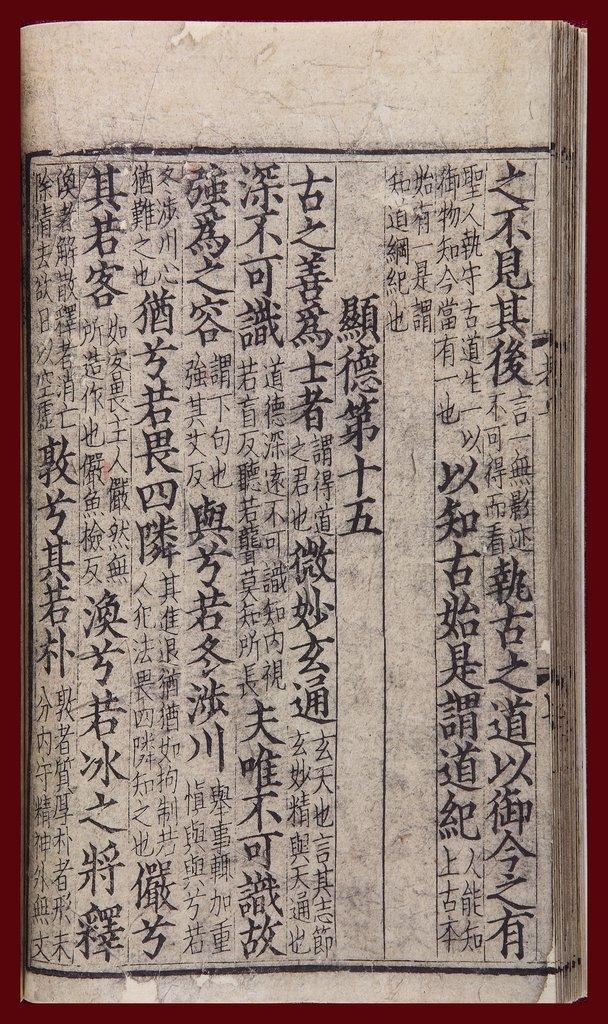 之不見其後言一無影迹不可得而看執古之道以御今之有
聖人執守古道生一以御物知今當有一也以知古始是謂道紀人能知上古本
始有一是謂知道綱紀也
顯德第十五
古之善爲士者謂得道之君也微妙玄通玄天也言其志節玄妙精與天通也
深不可識道德深遠不可識知内視若盲反聽若聾莫知所長夫唯不可識故
強爲之容謂下句也強其丈反與兮若冬涉川舉事輒加重慎與與兮若
冬涉川心猶難之也猶兮若畏四隣其進退猶猶如拘制若人犯法畏四隣知之也儼兮
其若客如客畏主人儼然無所造作也儼魚檢反渙兮若冰之將釋
渙者解散釋者消亡除情去欲日以空虛敦兮其若朴敦者質厚朴者形未分内守精神外無文